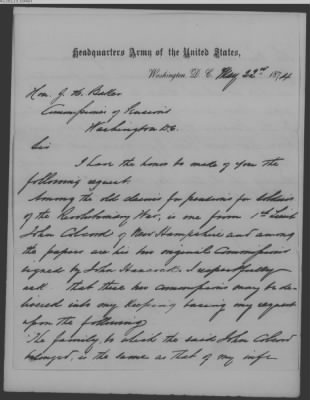 Headquarters Army of the United States,
Washington, D. C. May 22nd, 1874
Hon. J. H. Baker
Commissioner of Pensions
Washington D.C.
Sir
I have the honor to make of you the
following request.
Among the old claims for pensions for soldiers
of the Revolutionary War, is one from 1st Lieut
John Colcord of New Hampshire and among
the papers are his two original Commissions
signed by John Hancock. I respectfully
ask that these two commissions may be de-
livered into my keeping basing my request
upon the following
The family to which the said John Colcord
belonged, is the same as that of my wife